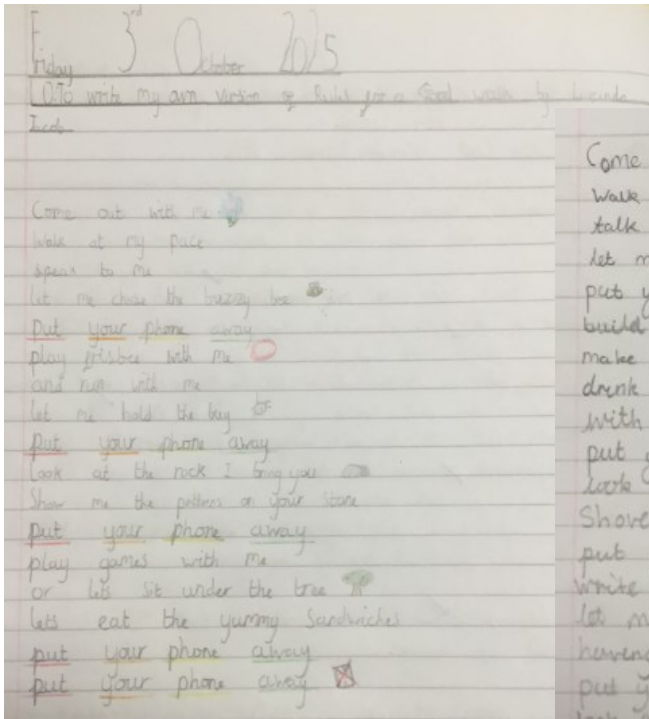 Friday 3rd October 2025
L.O.To write my own version of Rules for a Good walk by Lucinda
Jacob
Come out with me
Walk at my pace
speak to me
let me chase the buzzey bee
put your phone away
play frisbee with me
and run with me
let me hold the bug
put your phone away
Look at the rock I bring you
Show me the pattens on your stone
put your phone away
play games with me
or lets sit under the tree
lets eat the yummy Sandwiches
put your phone away
put your phone away
Come
Walk
talk
let m
put y
build
make
drink
with
put y
look
Shove
put
write
let m
put y